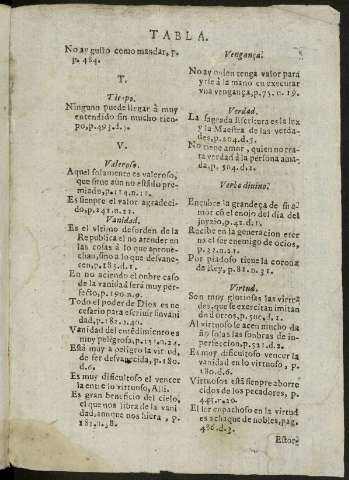 TABLA.
No ay gusto como mandar, p.
p. 484.
T.
Tiempo.
Ninguno puede llegar à muy
entendido sin mucho tiem-
po, p.493.d.5.
V.
Valeroso.
Aquel solamente es valeroso,
que sirue aun no estãdo pre-
miado, p.124.n.12.
Es siempre el valor agradeci-
do, p.141.n.21.
Vanidad.
Es el vltimo desorden de la
Republica el no atender en
las cosas à lo que aproue-
chan, sino a lo que desvane-
cen, p.183.d.1.
En no aciendo el onbre caso
de la vanidad será muy per-
fecto, p.190.n.9.
Todo el poder de Dios es ne
cesario para escriuir sin vani
dad, p.182.3.40.
Vanidad del entẽdimiento es
muy peligrosa, p.151.n.24.
Està muy a peligro la virtud,
de ser desvanecida, p.180.
d.6.
Es muy dificultoso el vencer
la entre lo virtuoso, Alli.
Es gran beneficio del cielo,
el que nos libra de la vani
dad, aunque nos hiera, p.
181.n.38.
Vengança.
No ay quien tenga valor para
yrse à la mano en executar
vna vengança, p.75.n.19.
Verdad.
La sagrada Escritura es la luz
y la Maestra de las verda-
des, p.204.d.5.
No tiene amor, quien no tra-
ta verdad à la persona ama-
da, p.504.d.2.
Verbo diuino.
Encubre la grandeça de su a-
mor cõ el enojo del dia del
joyzio, p.42.d.1.
Recibe en la generacion eter
na el ser enemigo de ocios,
p.32.n.21.
Por piadoso tiene la corona
de Rey, p.81.n.31.
Virtud.
Son muy gloriosas las virtu
des, que se exercitan imitan
do à otros, p.50
Al virtuoso le acen mucho da
ño solas las sonbras de in-
perfeccion, p.521.d.2.
Es muy dificultoso vencer la
vanidad en lo virtuoso, p.
180.d.6.
Virtuosos està sienpre aborre
cidos de los pecadores, p.
445.
El ser enpachoso en la virtud
es achaque de nobles, pag.
486.d.3.
Estor-